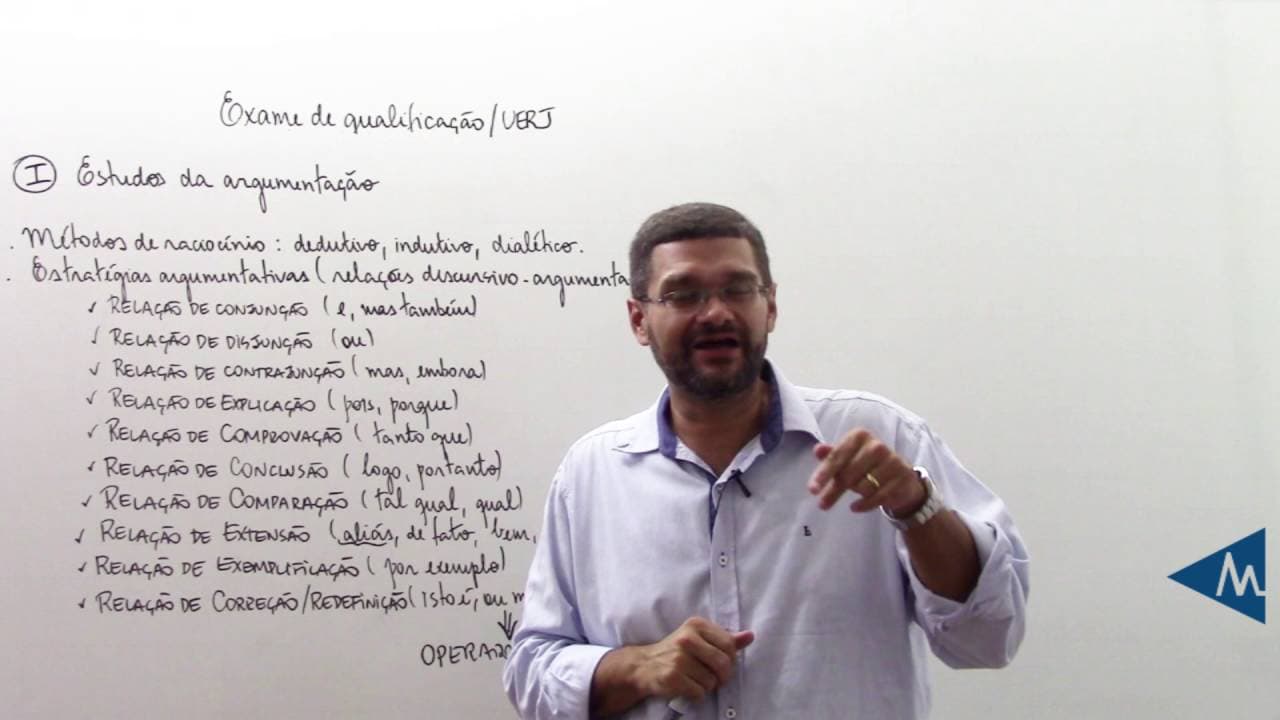 Exame de qualificação/UERJ
I Estudos da argumentação
. Métodos de raciocínio: dedutivo, indutivo, dialético.
. Estratégias argumentativas (relações discursivo-argumenta
✓ RELAÇÃO DE CONJUNÇÃO (e, mas também)
✓ RELAÇÃO DE DISJUNÇÃO (ou)
✓ RELAÇÃO DE CONTRAJUNÇÃO (mas, embora)
✓ RELAÇÃO DE EXPLICAÇÃO (pois, porque)
✓ RELAÇÃO DE COMPROVAÇÃO (tanto que)
✓ RELAÇÃO DE CONCLUSÃO (logo, portanto)
✓ RELAÇÃO DE COMPARAÇÃO (tal qual, qual)
✓ RELAÇÃO DE EXTENSÃO (aliás, de fato, bem,
✓ RELAÇÃO DE EXEMPLIFICAÇÃO (por exemplo)
✓ RELAÇÃO DE CORREÇÃO/REDEFINIÇÃO (isto é, ou m
OPERADO
M